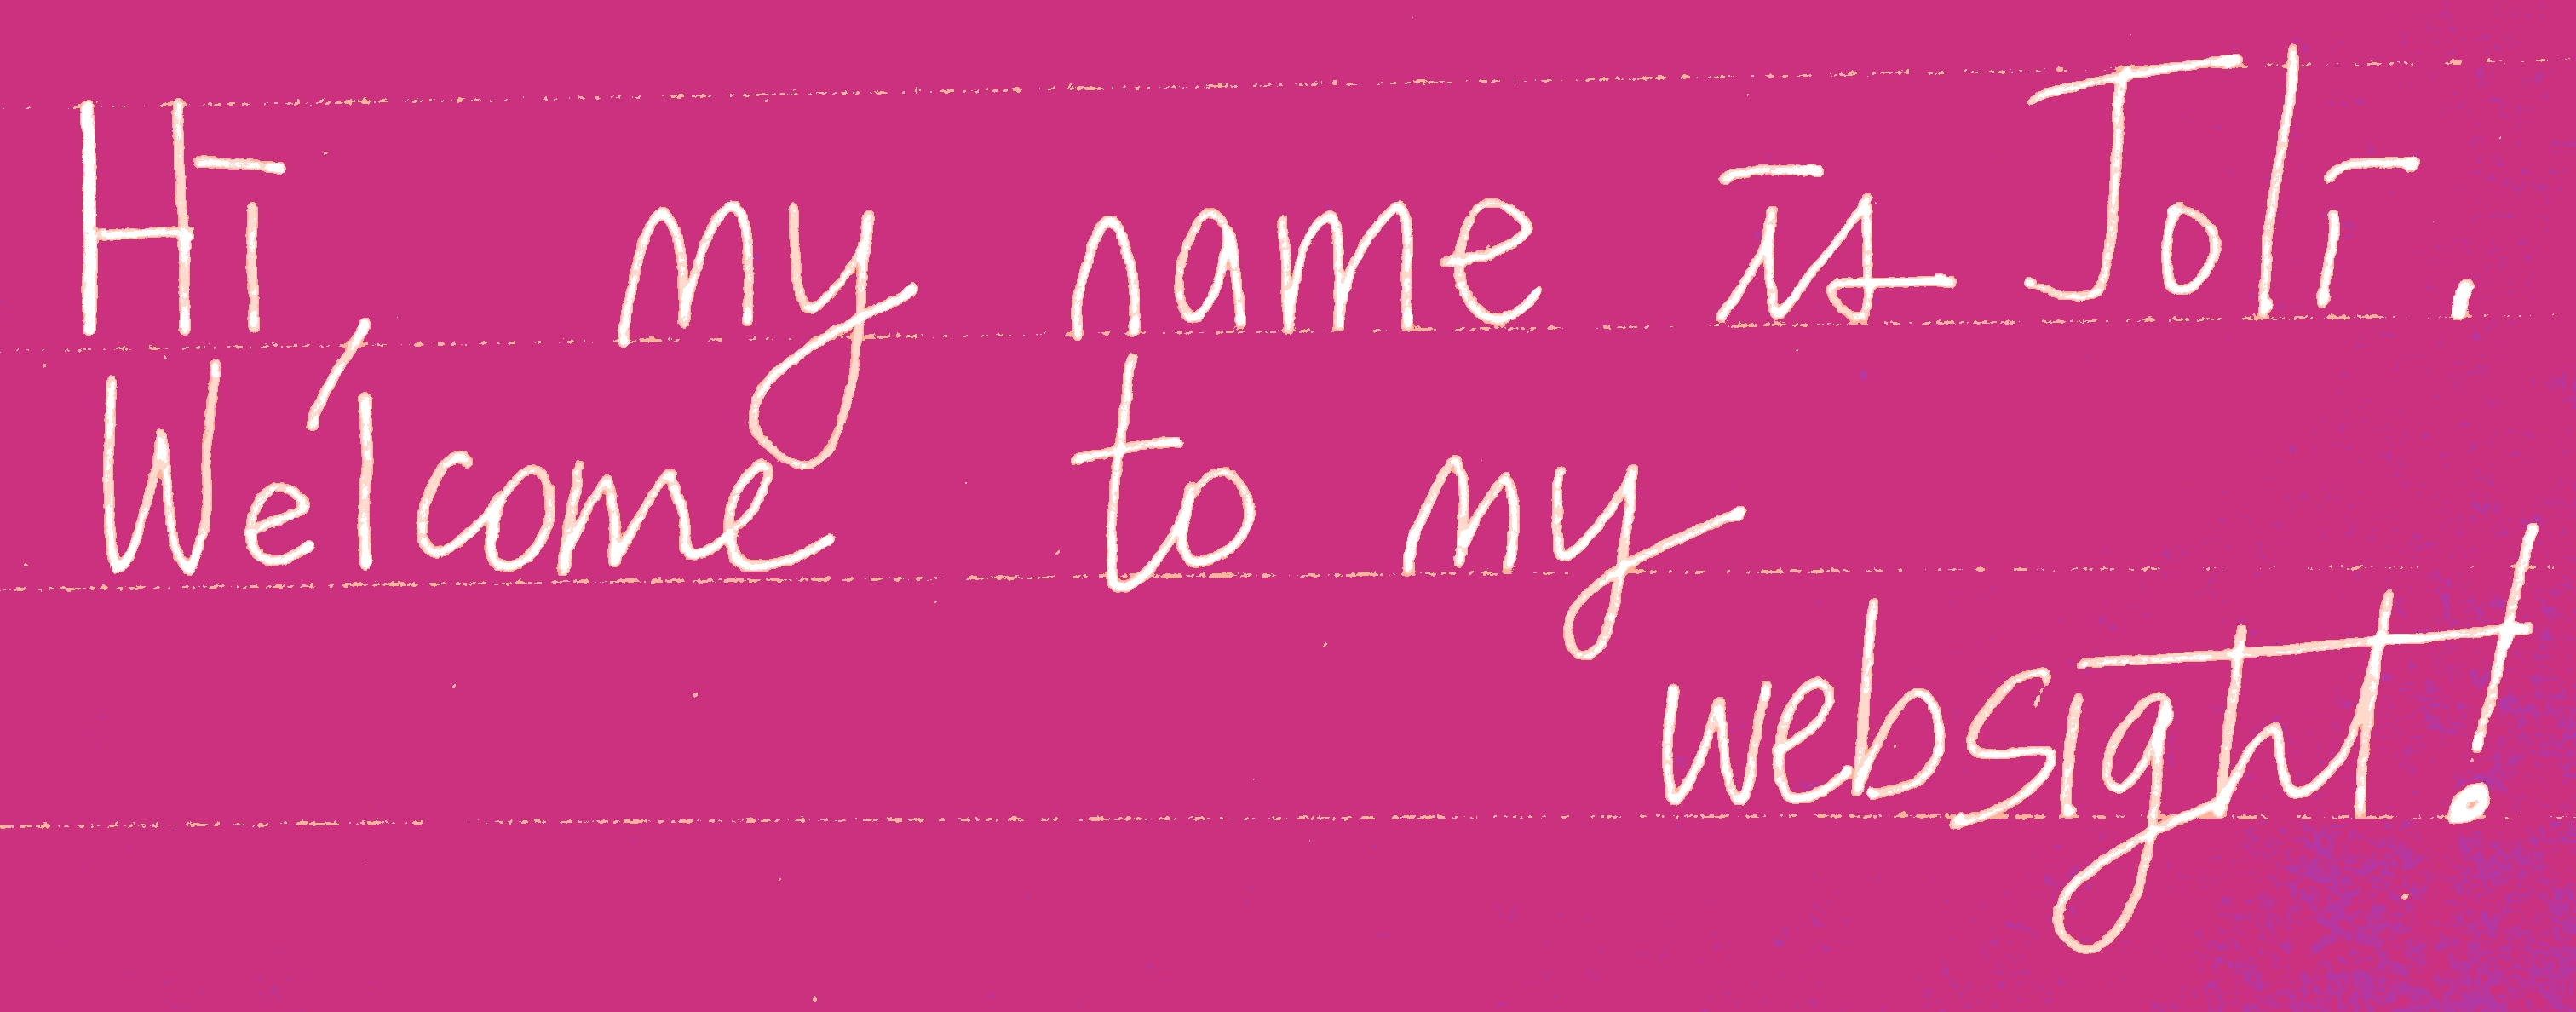 Hi, my name is Joli.
Welcome to my
websight!